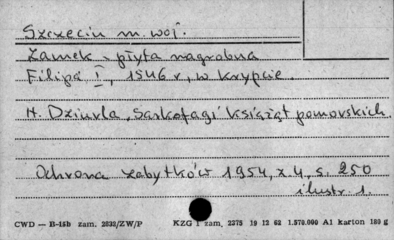 Szczecin m. woj.
Zamek - płyta nagrobna
Filipa I, 1546 r, w krypcie.
H. Dziurla, Sarkofagi książąt pomorskich
Ochrona zabytków 1954, z. 4, s. 250
ilustr. 1.
CWD — B-45b zam. 2832/ZW/P KZG 1 zam. 2375 19 12 62 1.570.000 A1 karton 180 g